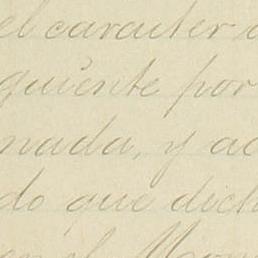 el caracter
quiente por
nada, y
do que dich
en el